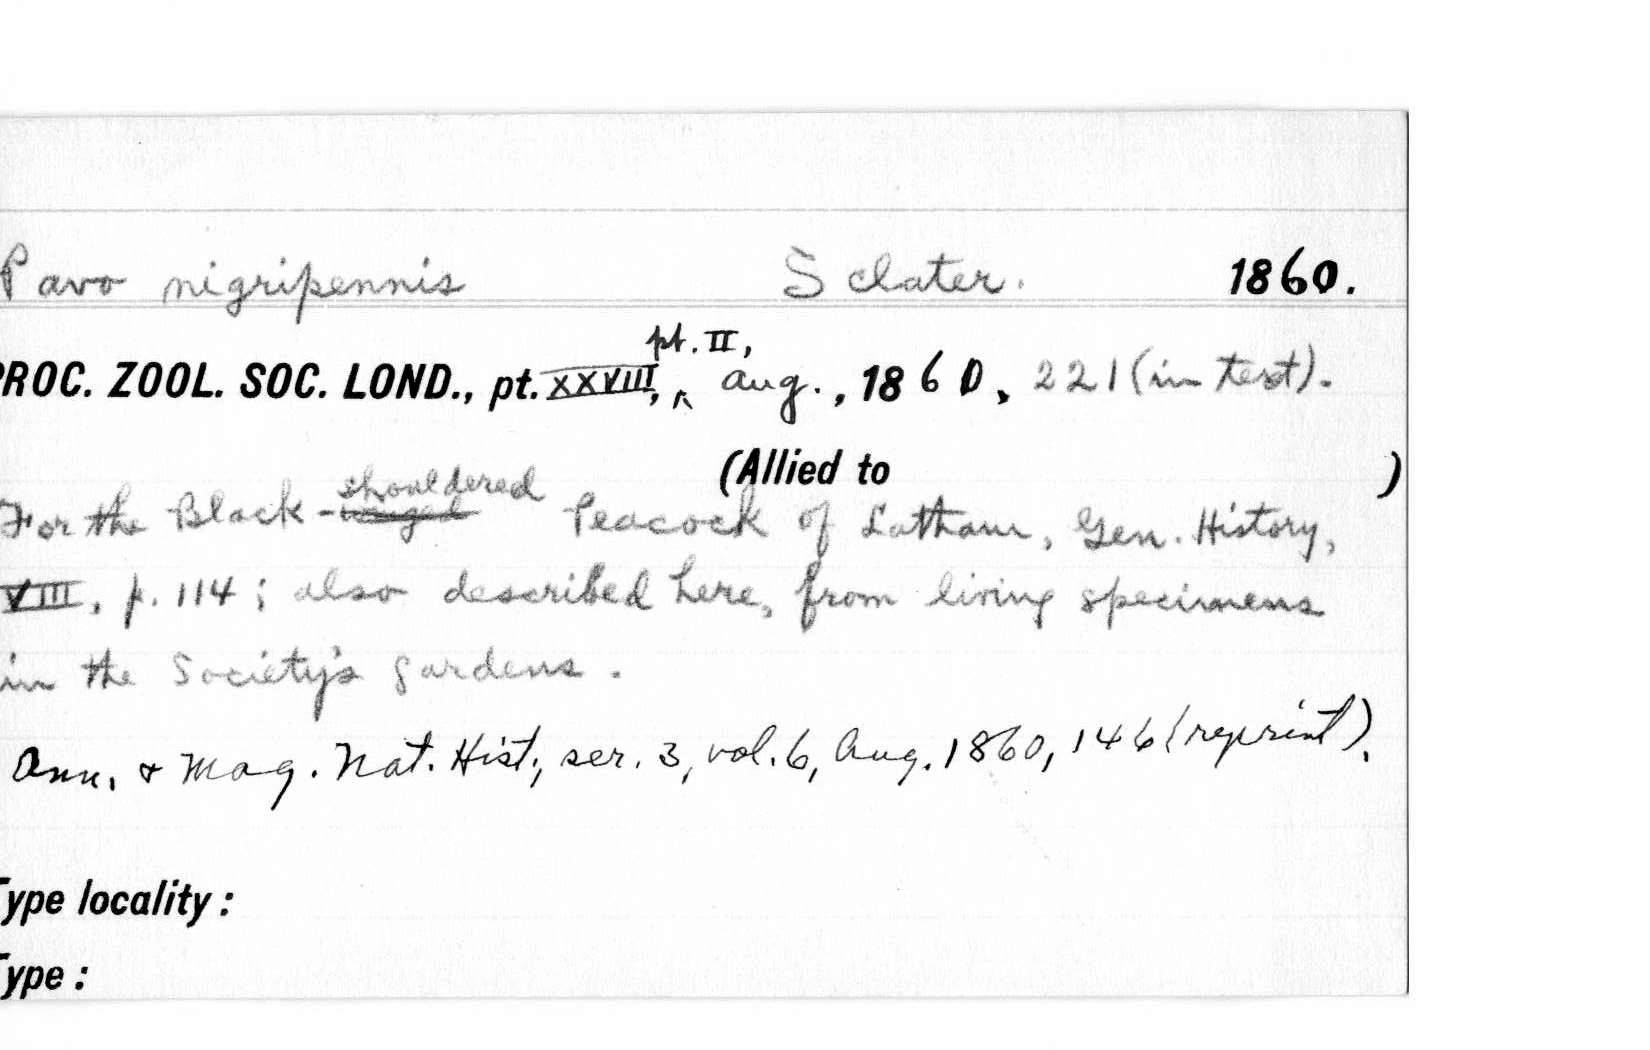 Pavo nigripennis Sclater. 1860.
pt. II,
PROC. ZOOL. SOC. LOND., pt. XXVIII, ^ Aug., 1860, 221 (in text).
(Allied to )
shouldered
For the Black-winged Peacock of Latham, Gen. History,
VIII, p. 114; also described here, from living specimens
in the Society's gardens.
Ann. & Mag. Nat. Hist., ser. 3, vol. 6, Aug. 1860, 146 (reprint).
Type locality:
Type: